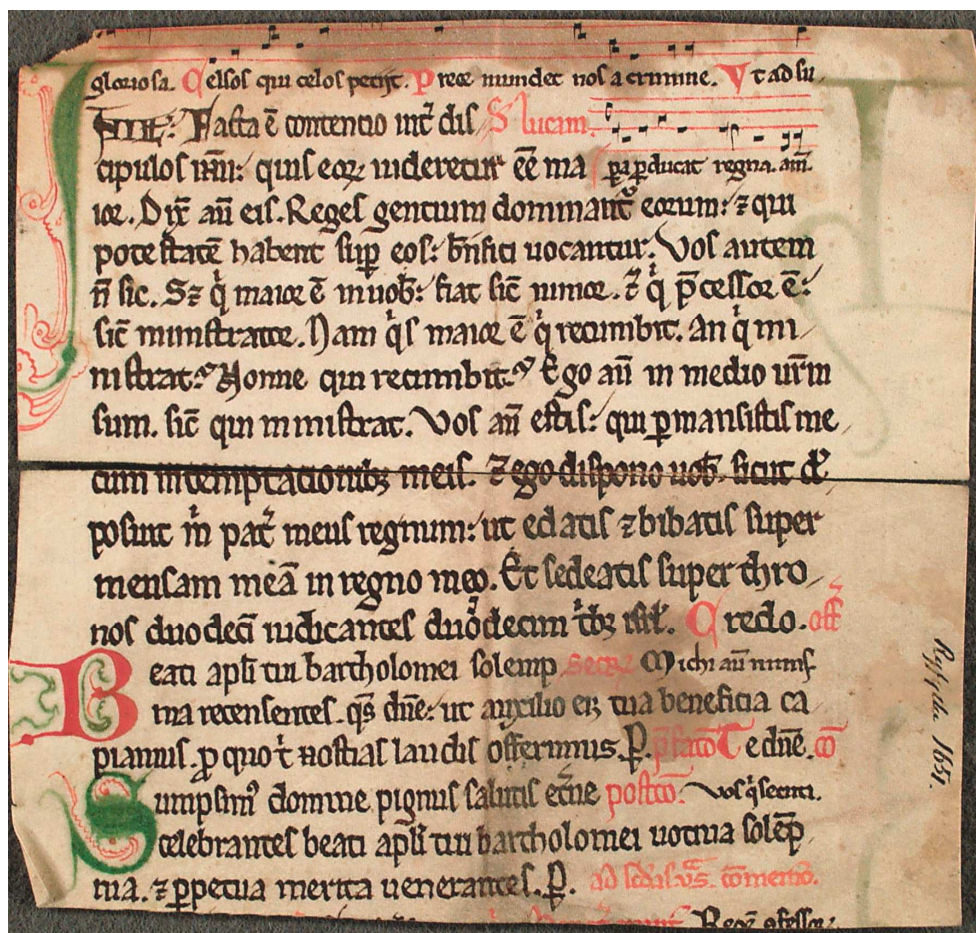 gloriosa. Celsos qui celos petijt. Prece mundet nos a crimine. Vt ad su
Facta ē contencio int̄ dis S lucam.
cipulos iħu: quis eoꝝ uideretur eē ma ꝑpꝑducat regna. am̄.
ior. Dix̄ aū eis. Reges gencium dominant̄ eorum: ⁊ qui
potestatē habent suꝑ eos: bn̄fici uocantur. Vos autem
n̄ sic. Sꝫ q̇ maior ē in uob: fiat sic̄ minor. ⁊ q̇ p̄cessor ē:
sic̄ ministrator. Nam q̇s maior ē q̇ recumbit. an q̇ mi
nistrat? Nonne qui recumbit? Ego aū in medio ur̄m
sum. sic̄ qui ministrat. Vos aū estis: qui ꝑmansistis me
cum in temptacionibꝫ meis. ⁊ ego dispono uob. sicut di
posuit m̄ pat̄ meus regnum: ut edatis ⁊ bibatis super
mensam meā in regno meo. Et sedeatis super thro
nos duodeci iudicantes duodecim t̄bꝫ isrl. Credo. off̄
Beati apl̄i tui bartholomei solemp secr̄ Michi aū nimis
nia recensentes. q̄s dn̄e: ut auxilio eiꝰ tua beneficia ca
piamus. ꝓ quo t̄ hostias laudis offerimus. P. p̄facō Te dn̄e. cō
Sumpsimꝰ domine pignus salutis et̄ne postcō. Vos q̇ secuti.
celebrantes beati apl̄i tui bartholomei uotiua solēp
nia. ⁊ ꝑpetua merita uenerantes. P.
Rysbyde. 1651.